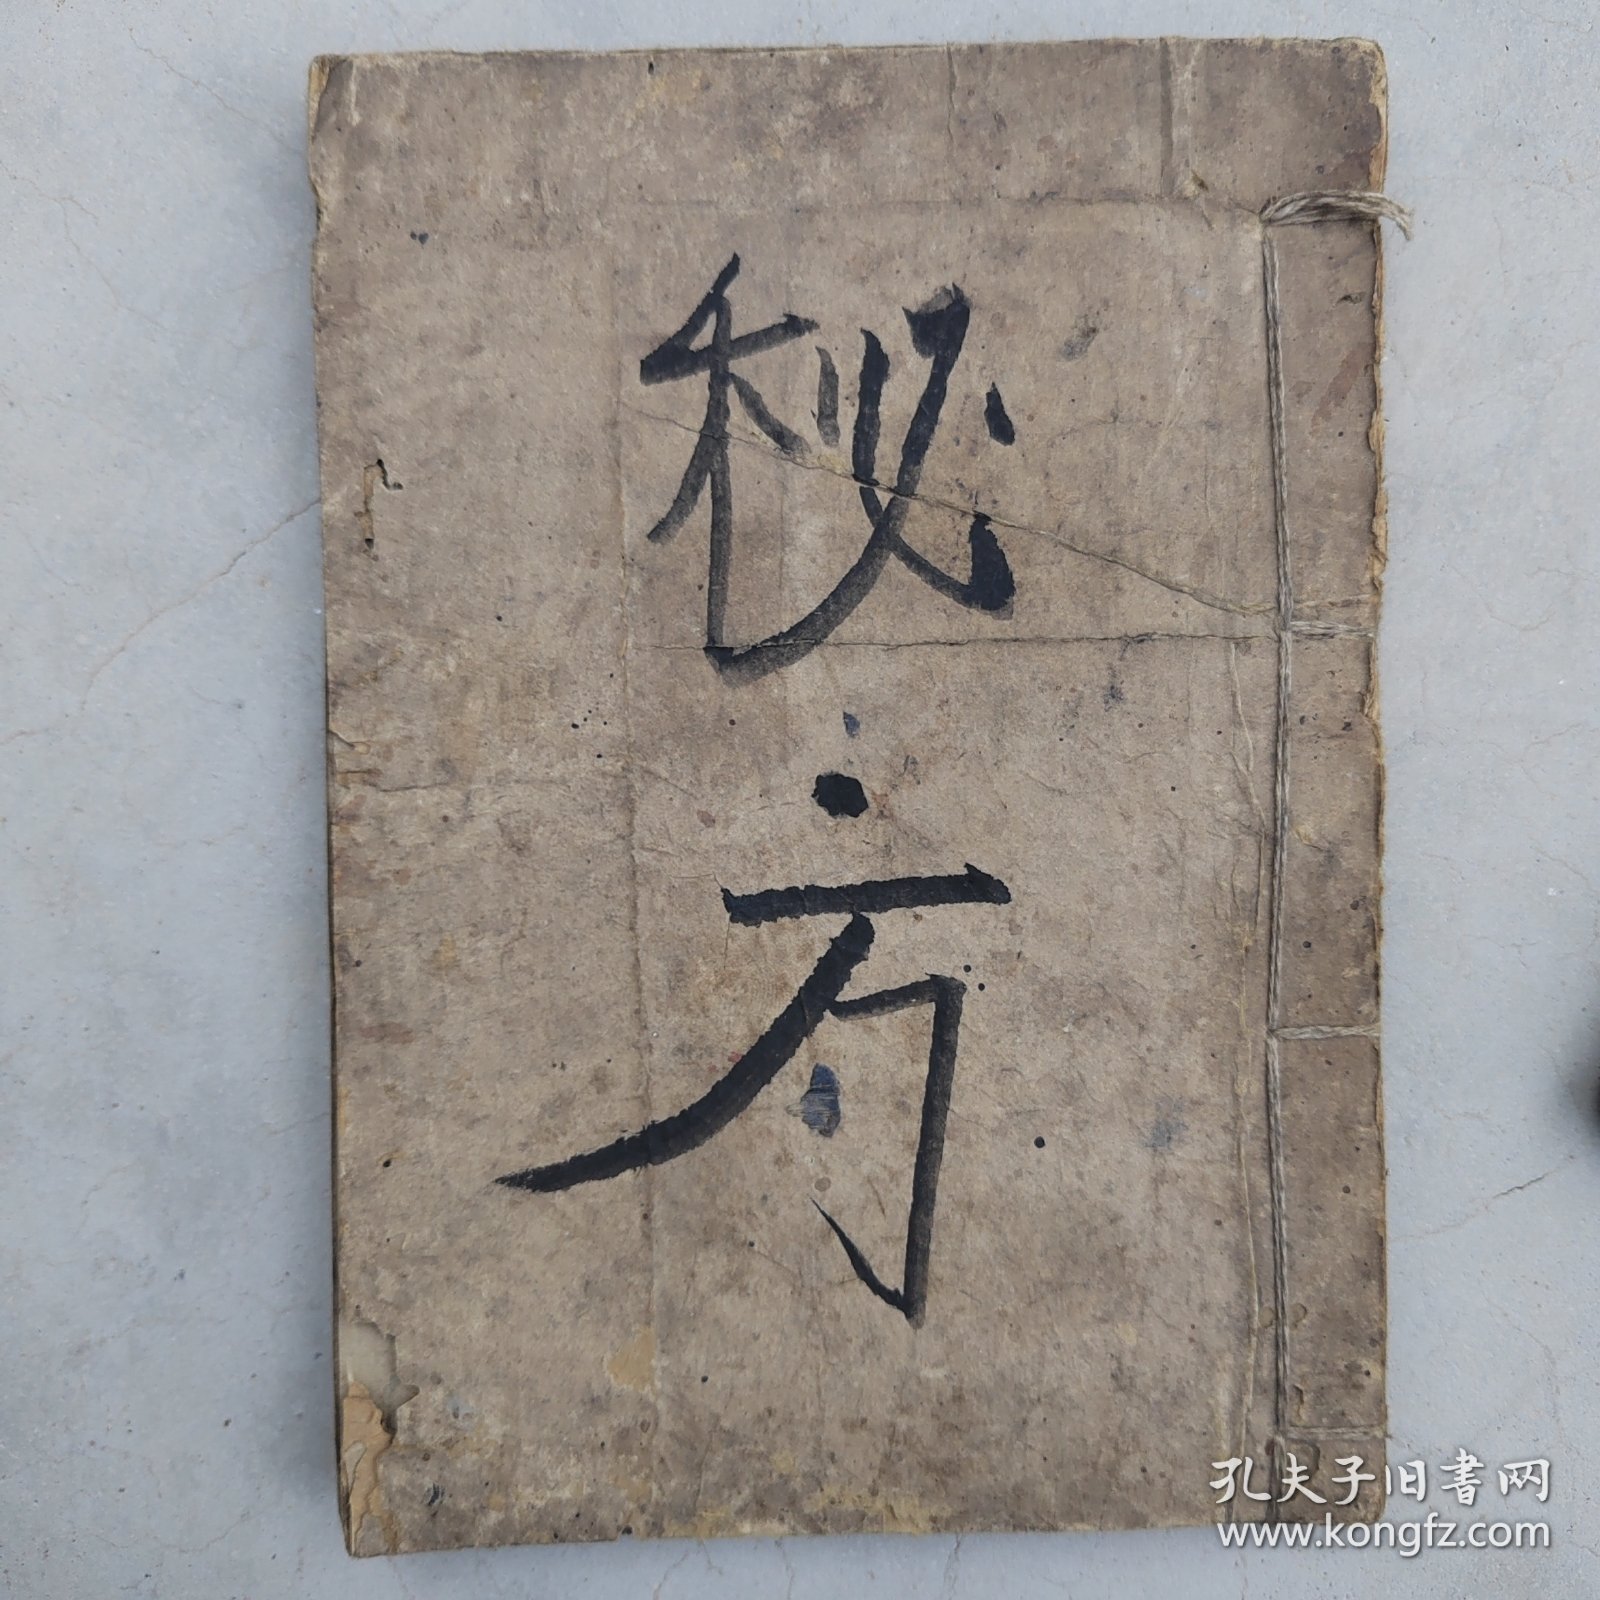 秘方
孔夫子旧书网
www.kongfz.com